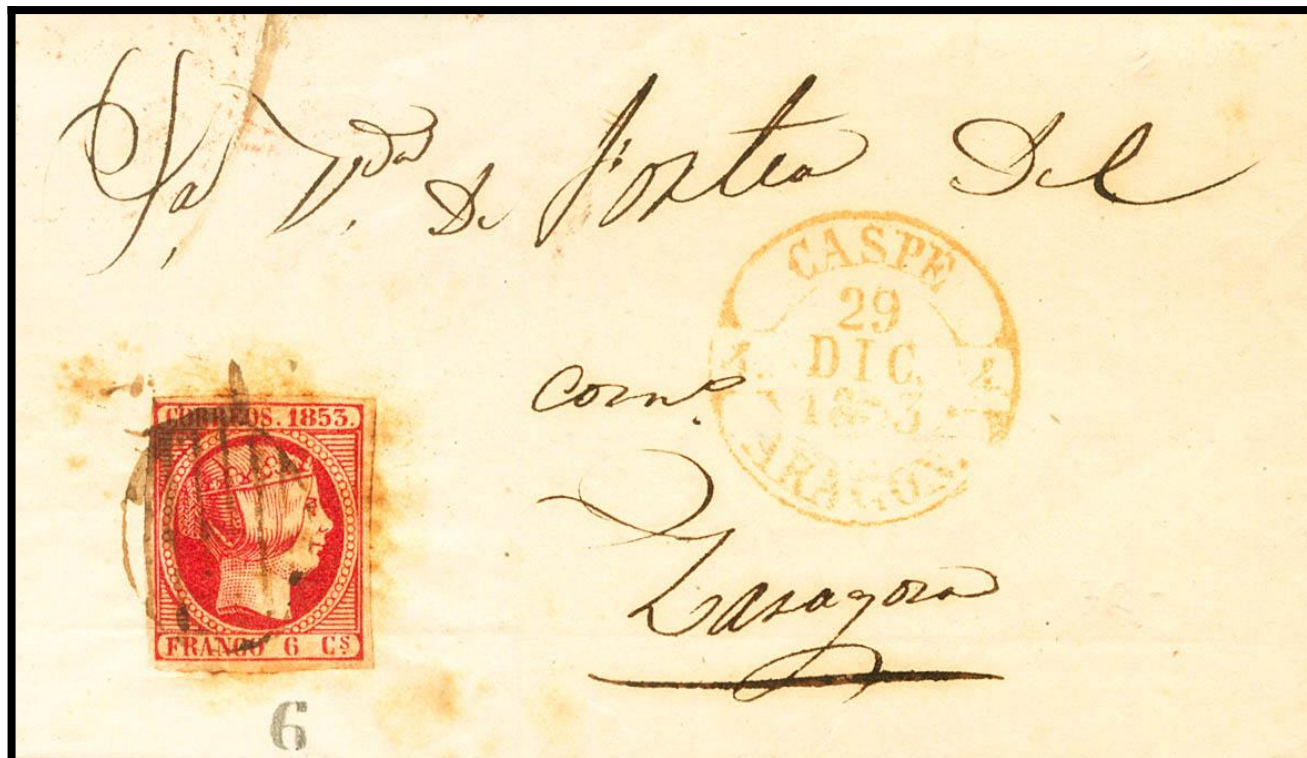 Sa. V.da De Fortea Del
CASPE
29
DIC.
1853
ARAGON.
com.o
Zaragoza
CORREOS. 1853.
FRANCO 6 Cs
6